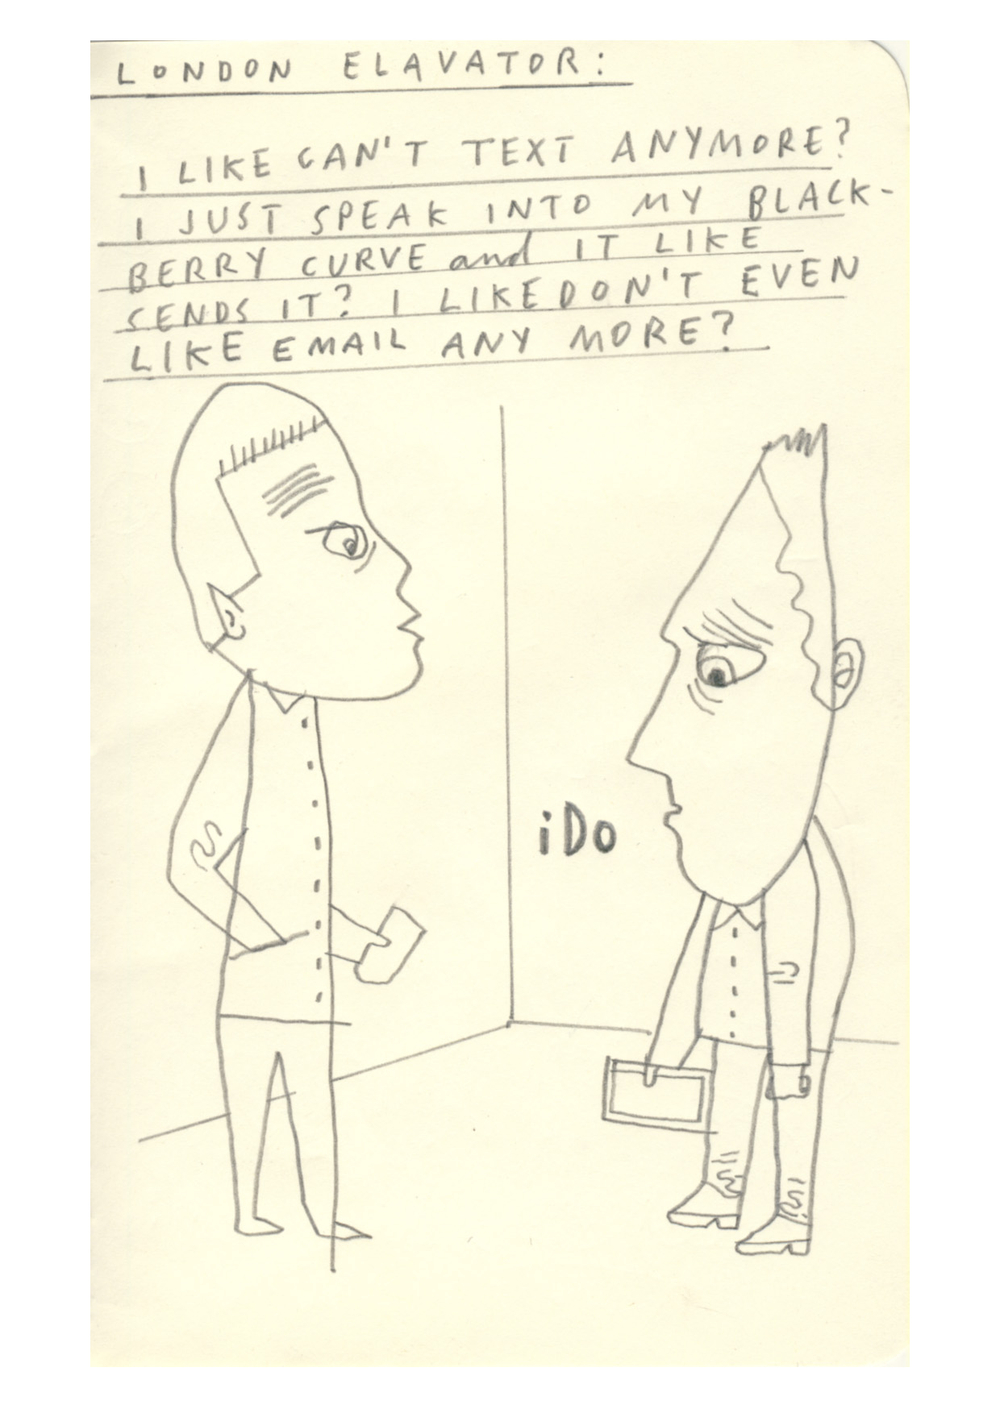 LONDON ELAVATOR:
I LIKE CAN'T TEXT ANYMORE?
I JUST SPEAK INTO MY BLACK-
BERRY CURVE and IT LIKE
SENDS IT? I LIKE DON'T EVEN
LIKE EMAIL ANY MORE?
iDo